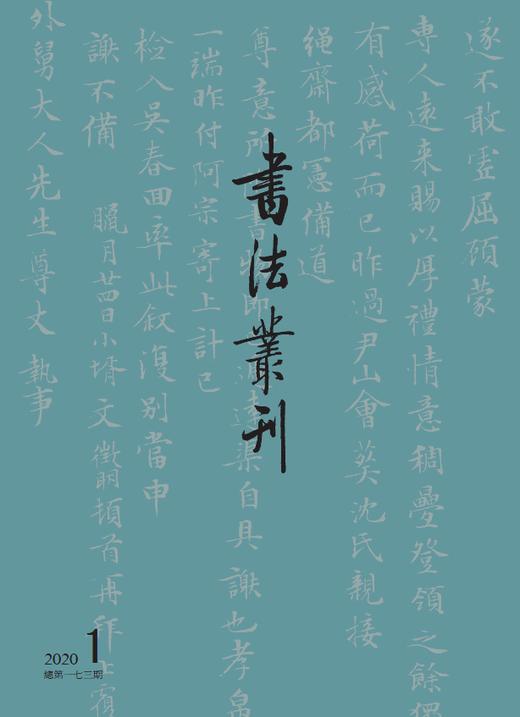 書法叢刊
遂不敢虛屈頋蒙
専人遠来賜以厚禮情意稠疊登領之餘
有感荷而已昨過尹山會葵沈氏親接
繩齋都憲備道
尊意所
自具謝也孝帛
一端昨付阿宗寄上計已
檢入吳春回率此叙復別當申
謝不備
臘月廿四日小壻文徵明頓首再拜上覆
外舅大人先生尊丈執事
2020 1
總第一七三期